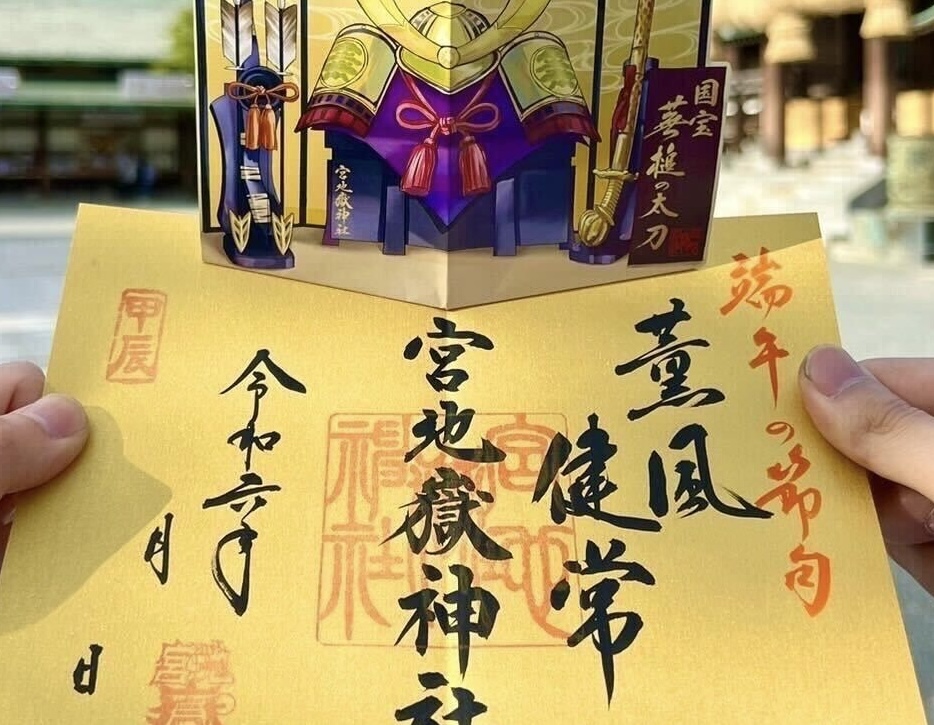 国宝
槌の太刀
宮地嶽神社
端午の節句
薫風
健常
宮地嶽神社
宮地嶽神社
令和六年
月
日
甲辰